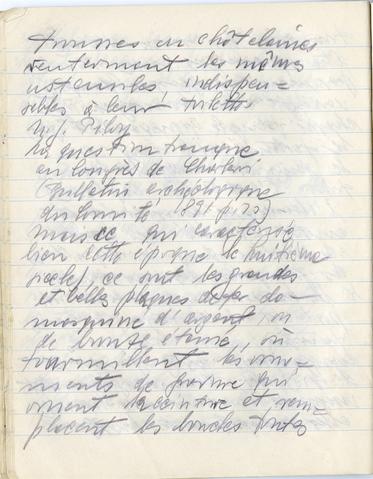 trousses en châtelaines
renferment les mêmes
ustensiles, indispen-
sables à leur toilette
La question franque
au congrès de Charleroi
(Bulletin archéologique
du Comité 1891 p.
mais ce qui caractérise
bien cette époque le huitième
siècle) ce sont les grandes
et belles plaques de fer da-
masquiné d'argent, ou
de bronze étamé, où
fourmillent les orne-
ments de gravure qui
ornent la ceinture et rem-
placent les boucles